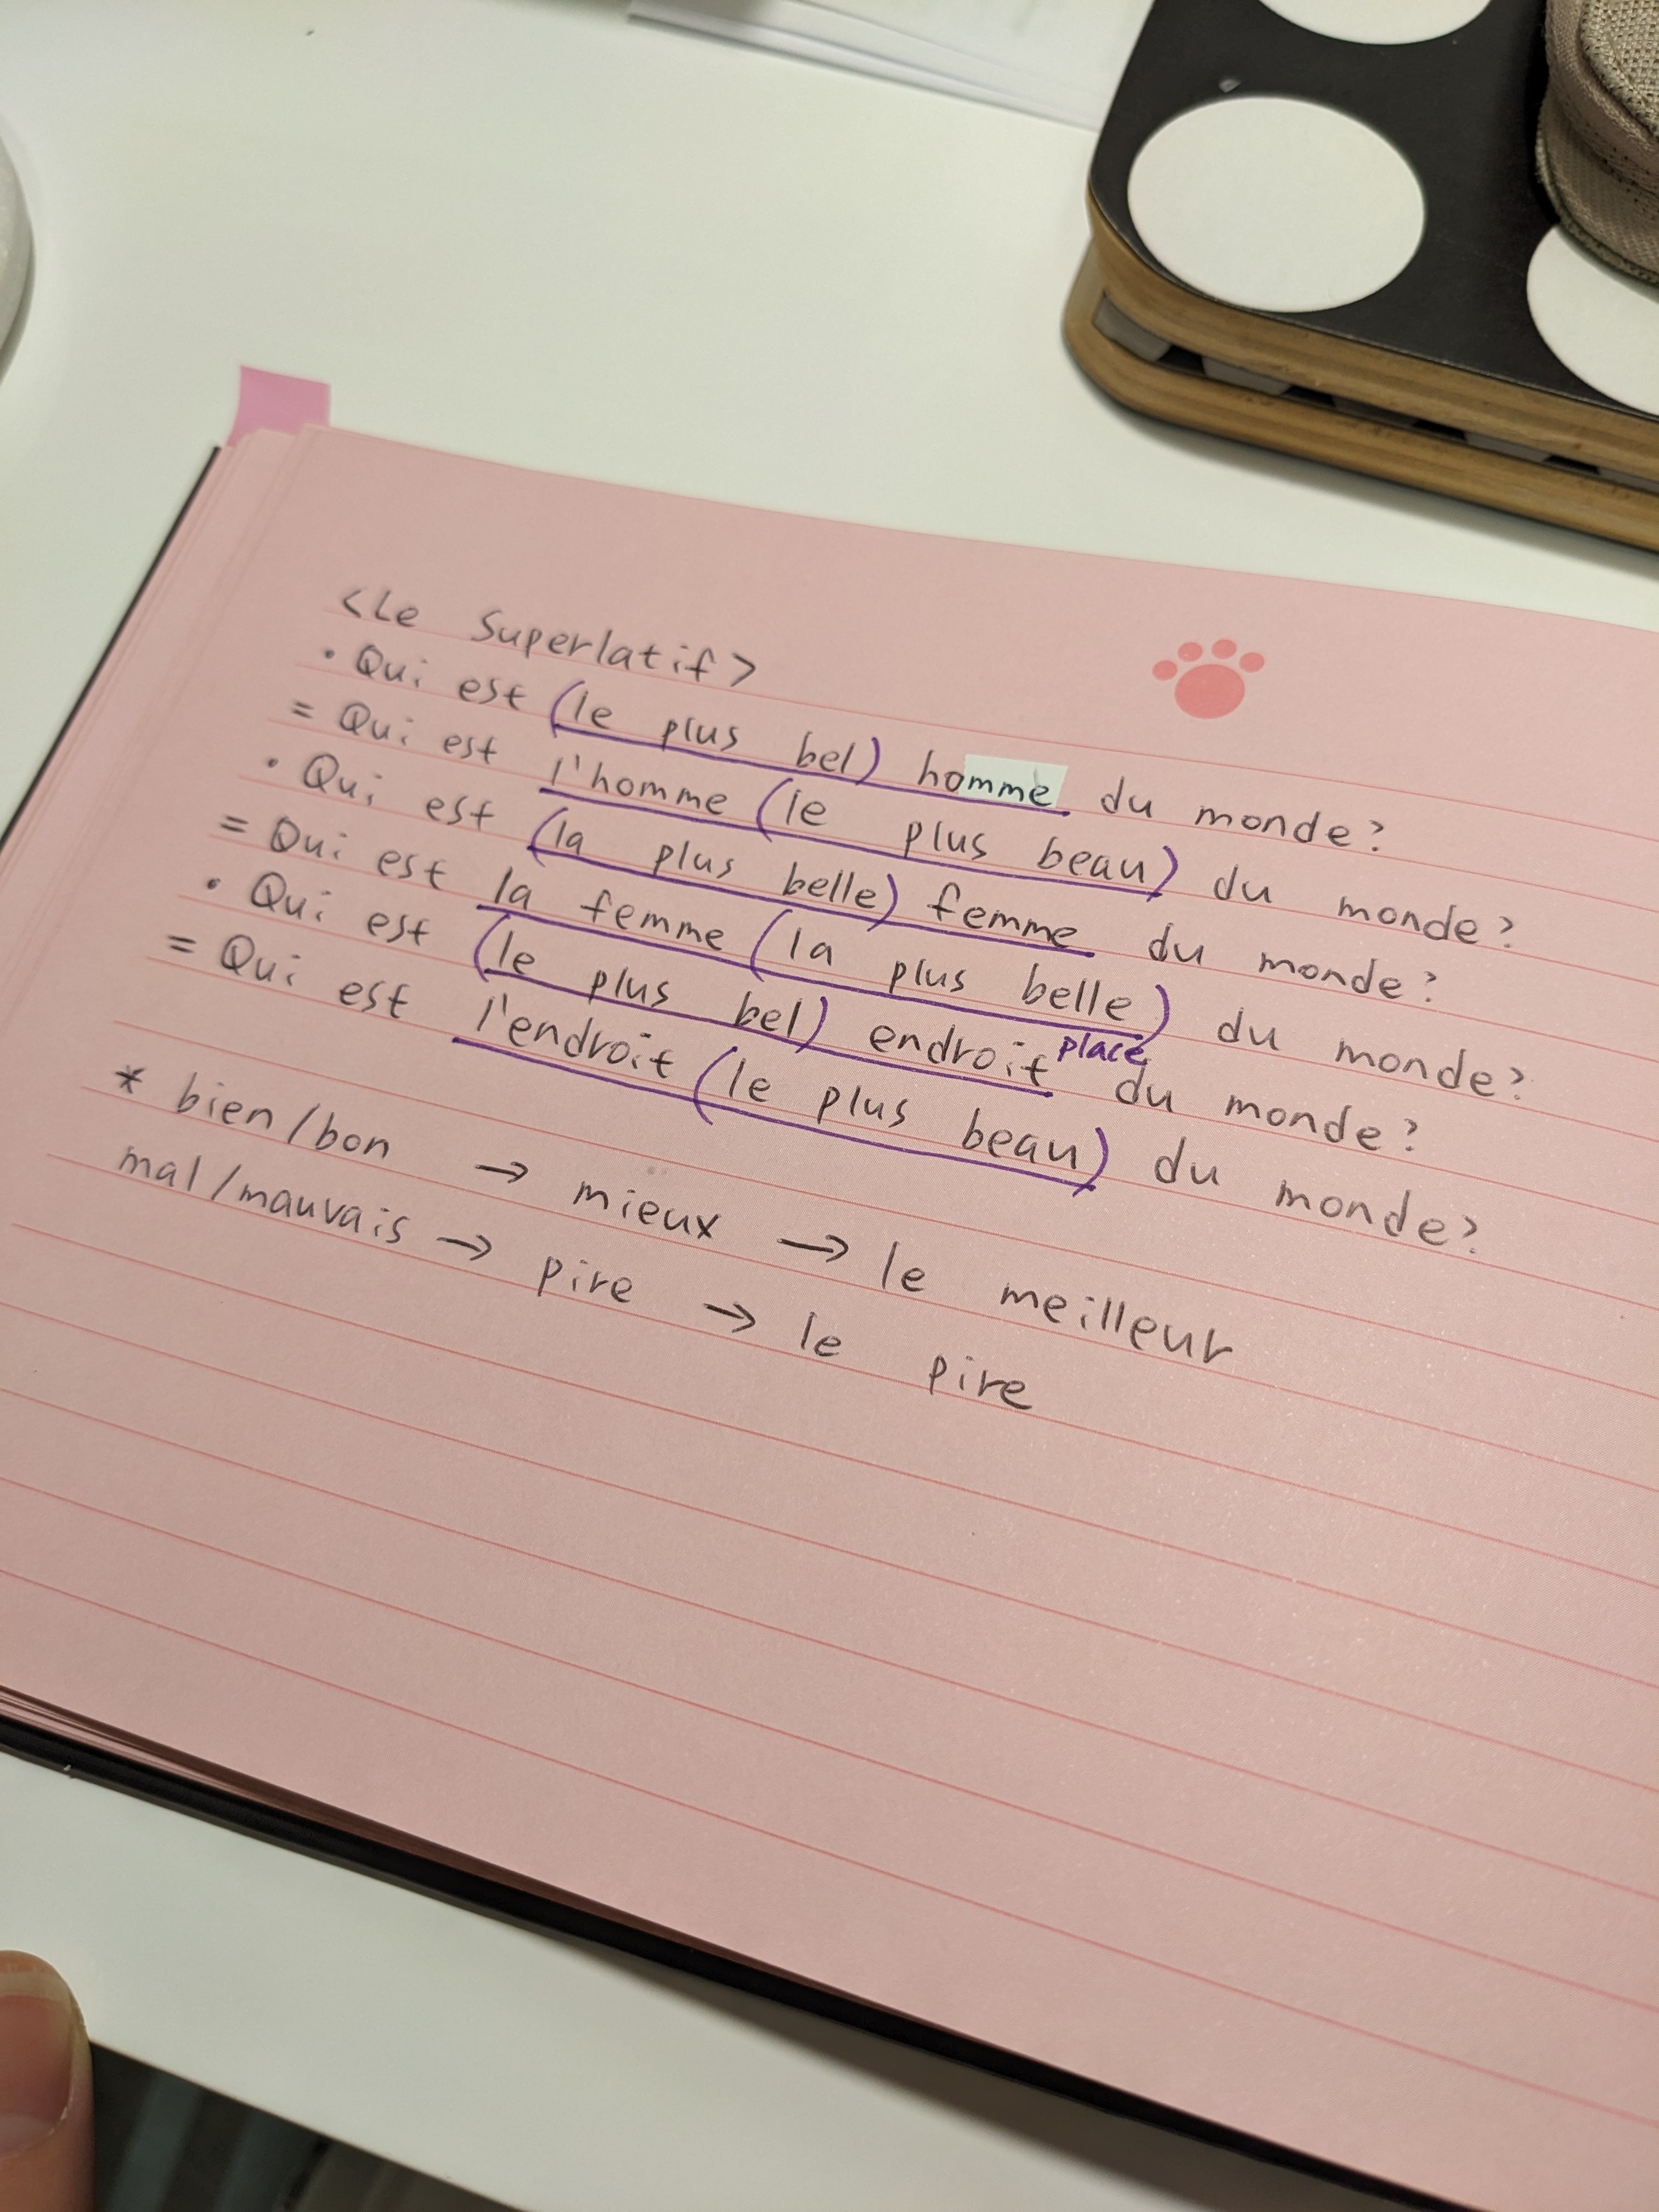 <Le Superlatif>
· Qui est (le plus bel) homme du monde?
= Qui est l'homme (le plus beau) du monde?
· Qui est (la plus belle) femme du monde?
= Qui est la femme (la plus belle) du monde?
· Qui est (le plus bel) endroit place du monde?
= Qui est l'endroit (le plus beau) du monde?
* bien/bon → mieux → le meilleur
mal/mauvais → pire → le pire